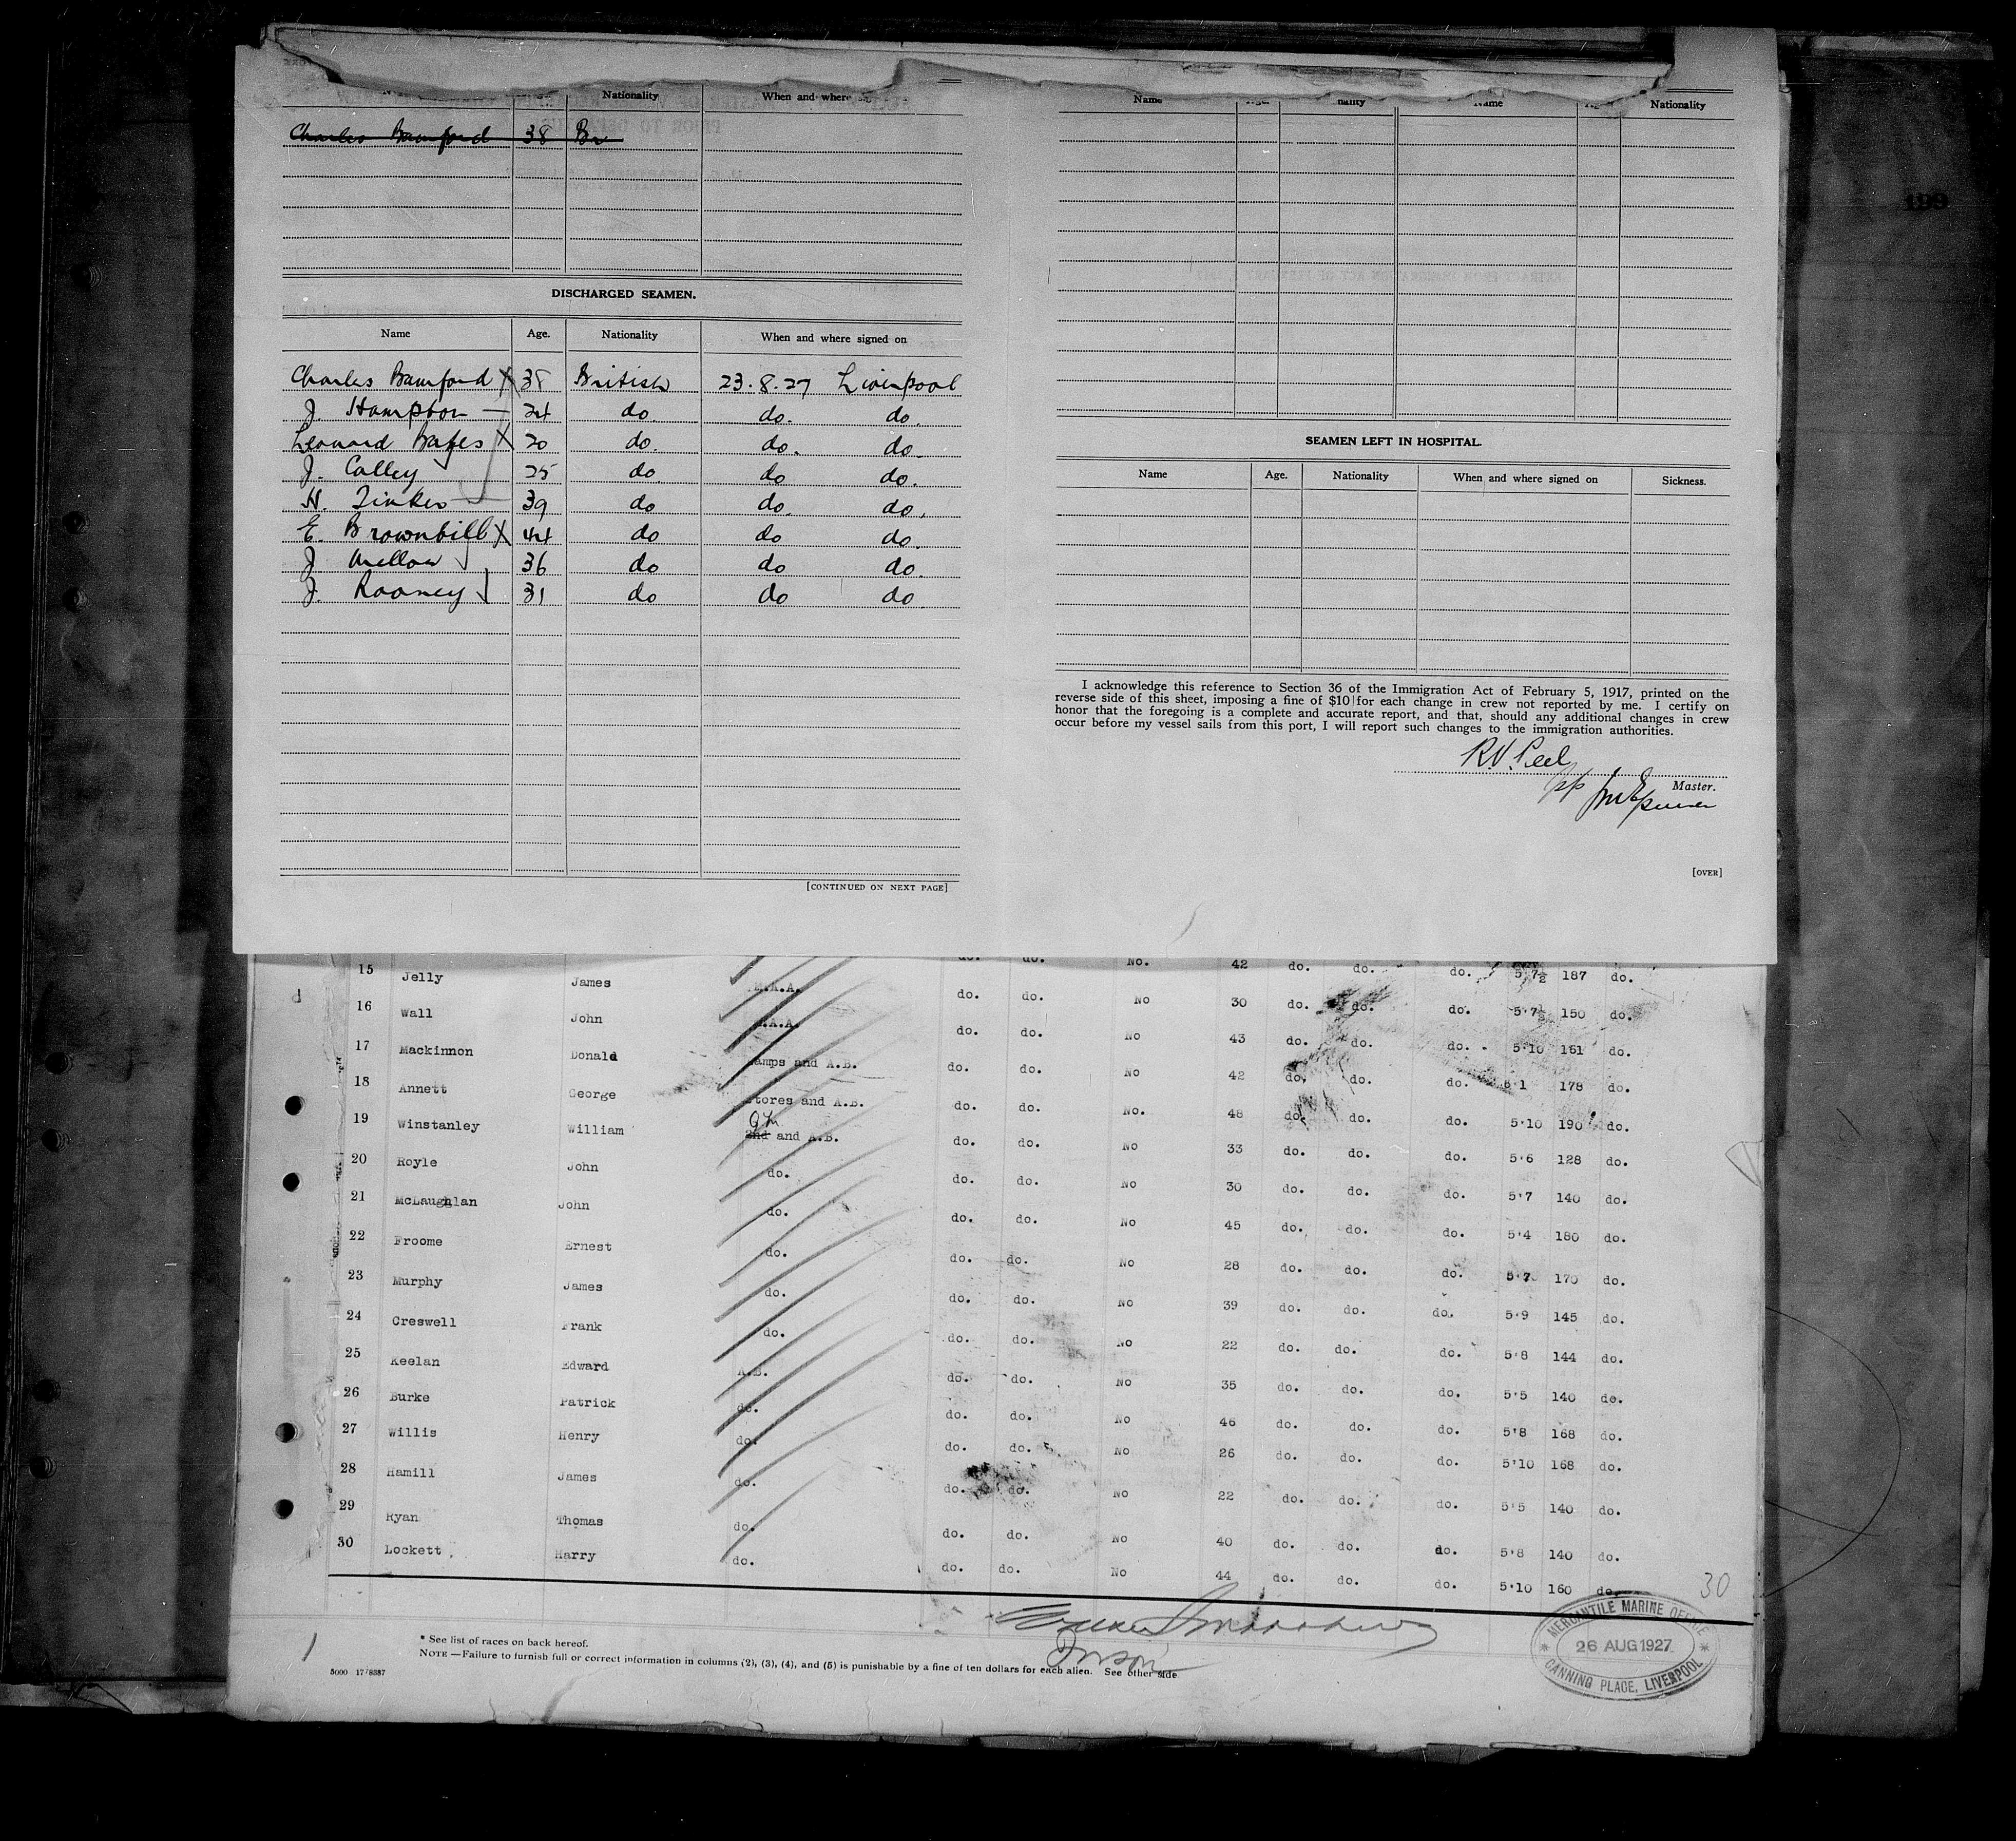 Nationality When and where
Charles Bamford 38 Br
DISCHARGED SEAMEN.
Name Age. Nationality When and where signed on
Charles Bamford X 38 British 23.8.27 Liverpool
J. Hampton 24 do. do. do.
Leonard X 20 do. do. do.
J. Colley 25 do do do.
H. Tinker 39 do do. do.
E. Brownbill X 44 do do do.
J. Mellow 36 do do do.
J. Rooney 31 do do do.
[CONTINUED ON NEXT PAGE]
Name Name Nationality
SEAMEN LEFT IN HOSPITAL.
Name Age. Nationality When and where signed on Sickness.
I acknowledge this reference to Section 36 of the Immigration Act of February 5, 1917, printed on the
reverse side of this sheet, imposing a fine of $10 for each change in crew not reported by me. I certify on
honor that the foregoing is a complete and accurate report, and that, should any additional changes in crew
occur before my vessel sails from this port, I will report such changes to the immigration authorities.
R.V. Peel
Master.
pp
[OVER]
199
15 Jelly James do. do. No. 42 do. do. do. 5'7½ 187 do.
16 Wall John do. do. No 30 do. do. do. 5'7½ 150 do.
17 Mackinnon Donald Lamps and A.B. do. do. No 43 do. do. do. 5'10 161 do.
18 Annett George Stores and A.B. do. do. No 42 do. do. do. 6'1 178 do.
19 Winstanley William 2nd and A.B. do. do. No. 48 do. do. do. 5'10 190 do.
20 Royle John do. do. do. No 33 do. do. do. 5'6 128 do.
21 McLaughlan John do. do. do. No 30 do. do. do. 5'7 140 do.
22 Froome Ernest do. do. do. No 45 do. do. do. 5'4 180 do.
23 Murphy James do. do. do. No 28 do. do. do. 5'7 170 do.
24 Creswell Frank do. do. do. No 39 do. do. do. 5'9 145 do.
25 Keelan Edward A.B. do. do. No 22 do. do. do. 5'8 144 do.
26 Burke Patrick do. do. do. No 35 do. do. do. 5'5 140 do.
27 Willis Henry do. do. do. No 46 do. do. do. 5'8 168 do.
28 Hamill James do. do. do. No 26 do. do. do. 5'10 168 do.
29 Ryan Thomas do. do. do. No 22 do. do. do. 5'5 140 do.
30 Lockett Harry do. do. do. No 40 do. do. do. 5'8 140 do.
do. do. No 44 do. do. do. 5'10 160 do.
30
MERCANTILE MARINE OFFICE
26 AUG 1927
CANNING PLACE, LIVERPOOL
* See list of races on back hereof.
NOTE—Failure to furnish full or correct information in columns (2), (3), (4), and (5) is punishable by a fine of ten dollars for each alien. See other side
5000 17/8387